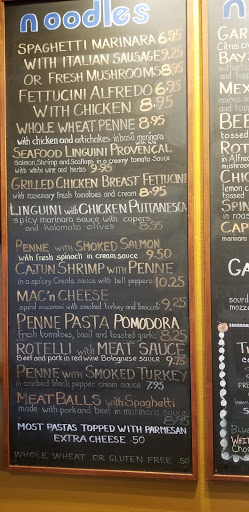 noodles
SPAGHETTI MARINARA 6.95
WITH ITALIAN SAUSAGE 9.25
OR FRESH MUSHROOMS 8.95
FETTUCINI ALFREDO 6.95
WITH CHICKEN 8.95
WHOLE WHEAT PENNE 8.95
with chicken and artichokes in basil marinara
SEAFOOD LINGUINI PROVENCAL
Salmon, Shrimp and Scallops in a creamy tomato Sauce
with white wine and herbs 9.95
GRILLED CHICKEN BREAST FETTUCINI
with rosemary fresh tomatoes and cream 8.95
LINGUINI with CHICKEN PUTTANESCA
spicy marinara sauce with capers
and kalamata olives 8.95
PENNE with SMOKED SALMON
with fresh spinach in cream sauce 9.50
CAJUN SHRIMP with PENNE
in a spicy Creole sauce with bell peppers 10.25
MAC'n CHEESE
spiral macaroni with smoked turkey and broccoli 9.25
PENNE PASTA POMODORA
Fresh tomatoes, basil and toasted garlic 8.25
ROTELLI with MEAT SAUCE
Beef and pork in red wine Bolognese sauce 9.75
PENNE with SMOKED TURKEY
in cracked black pepper cream sauce 7.95
MEATBALLS with Spaghetti
made with pork and beef in marinara sauce 8.95
MOST PASTAS TOPPED WITH PARMESAN
EXTRA CHEESE .50
WHOLE WHEAT OR GLUTEN FREE .50